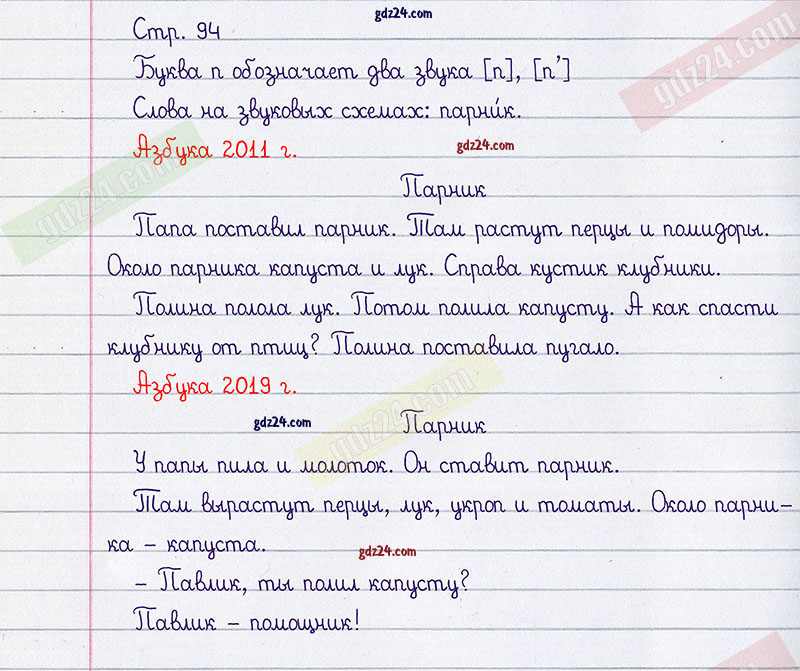 gdz24.com
Стр. 94
Буква п обозначает два звука [п], [п']
gdz24.com
Слова на звуковых схемах: парни́к.
Азбука 2011 г.
gdz24.com
gdz24.com
Парник
Папа поставил парник. Там растут перцы и помидоры.
Около парника капуста и лук. Справа кустик клубники.
Полина полола лук. Потом полила капусту. А как спасти
клубнику от птиц? Полина поставила пугало.
Азбука 2019 г.
gdz24.com
gdz24.com
Парник
У папы пила и молоток. Он ставит парник.
Там вырастут перцы, лук, укроп и томаты. Около парни-
ка – капуста.
gdz24.com
– Павлик, ты полил капусту?
Павлик – помощник!